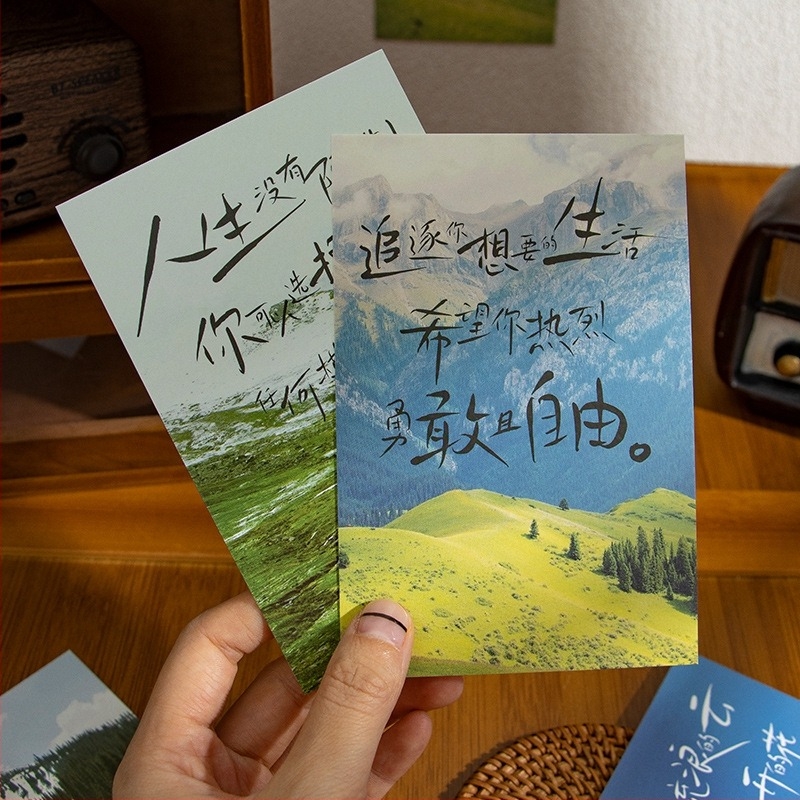 人生没有
你可以选择
任何
追逐你想要的生活
希望你热烈
勇敢且自由。
流浪的云
开的花